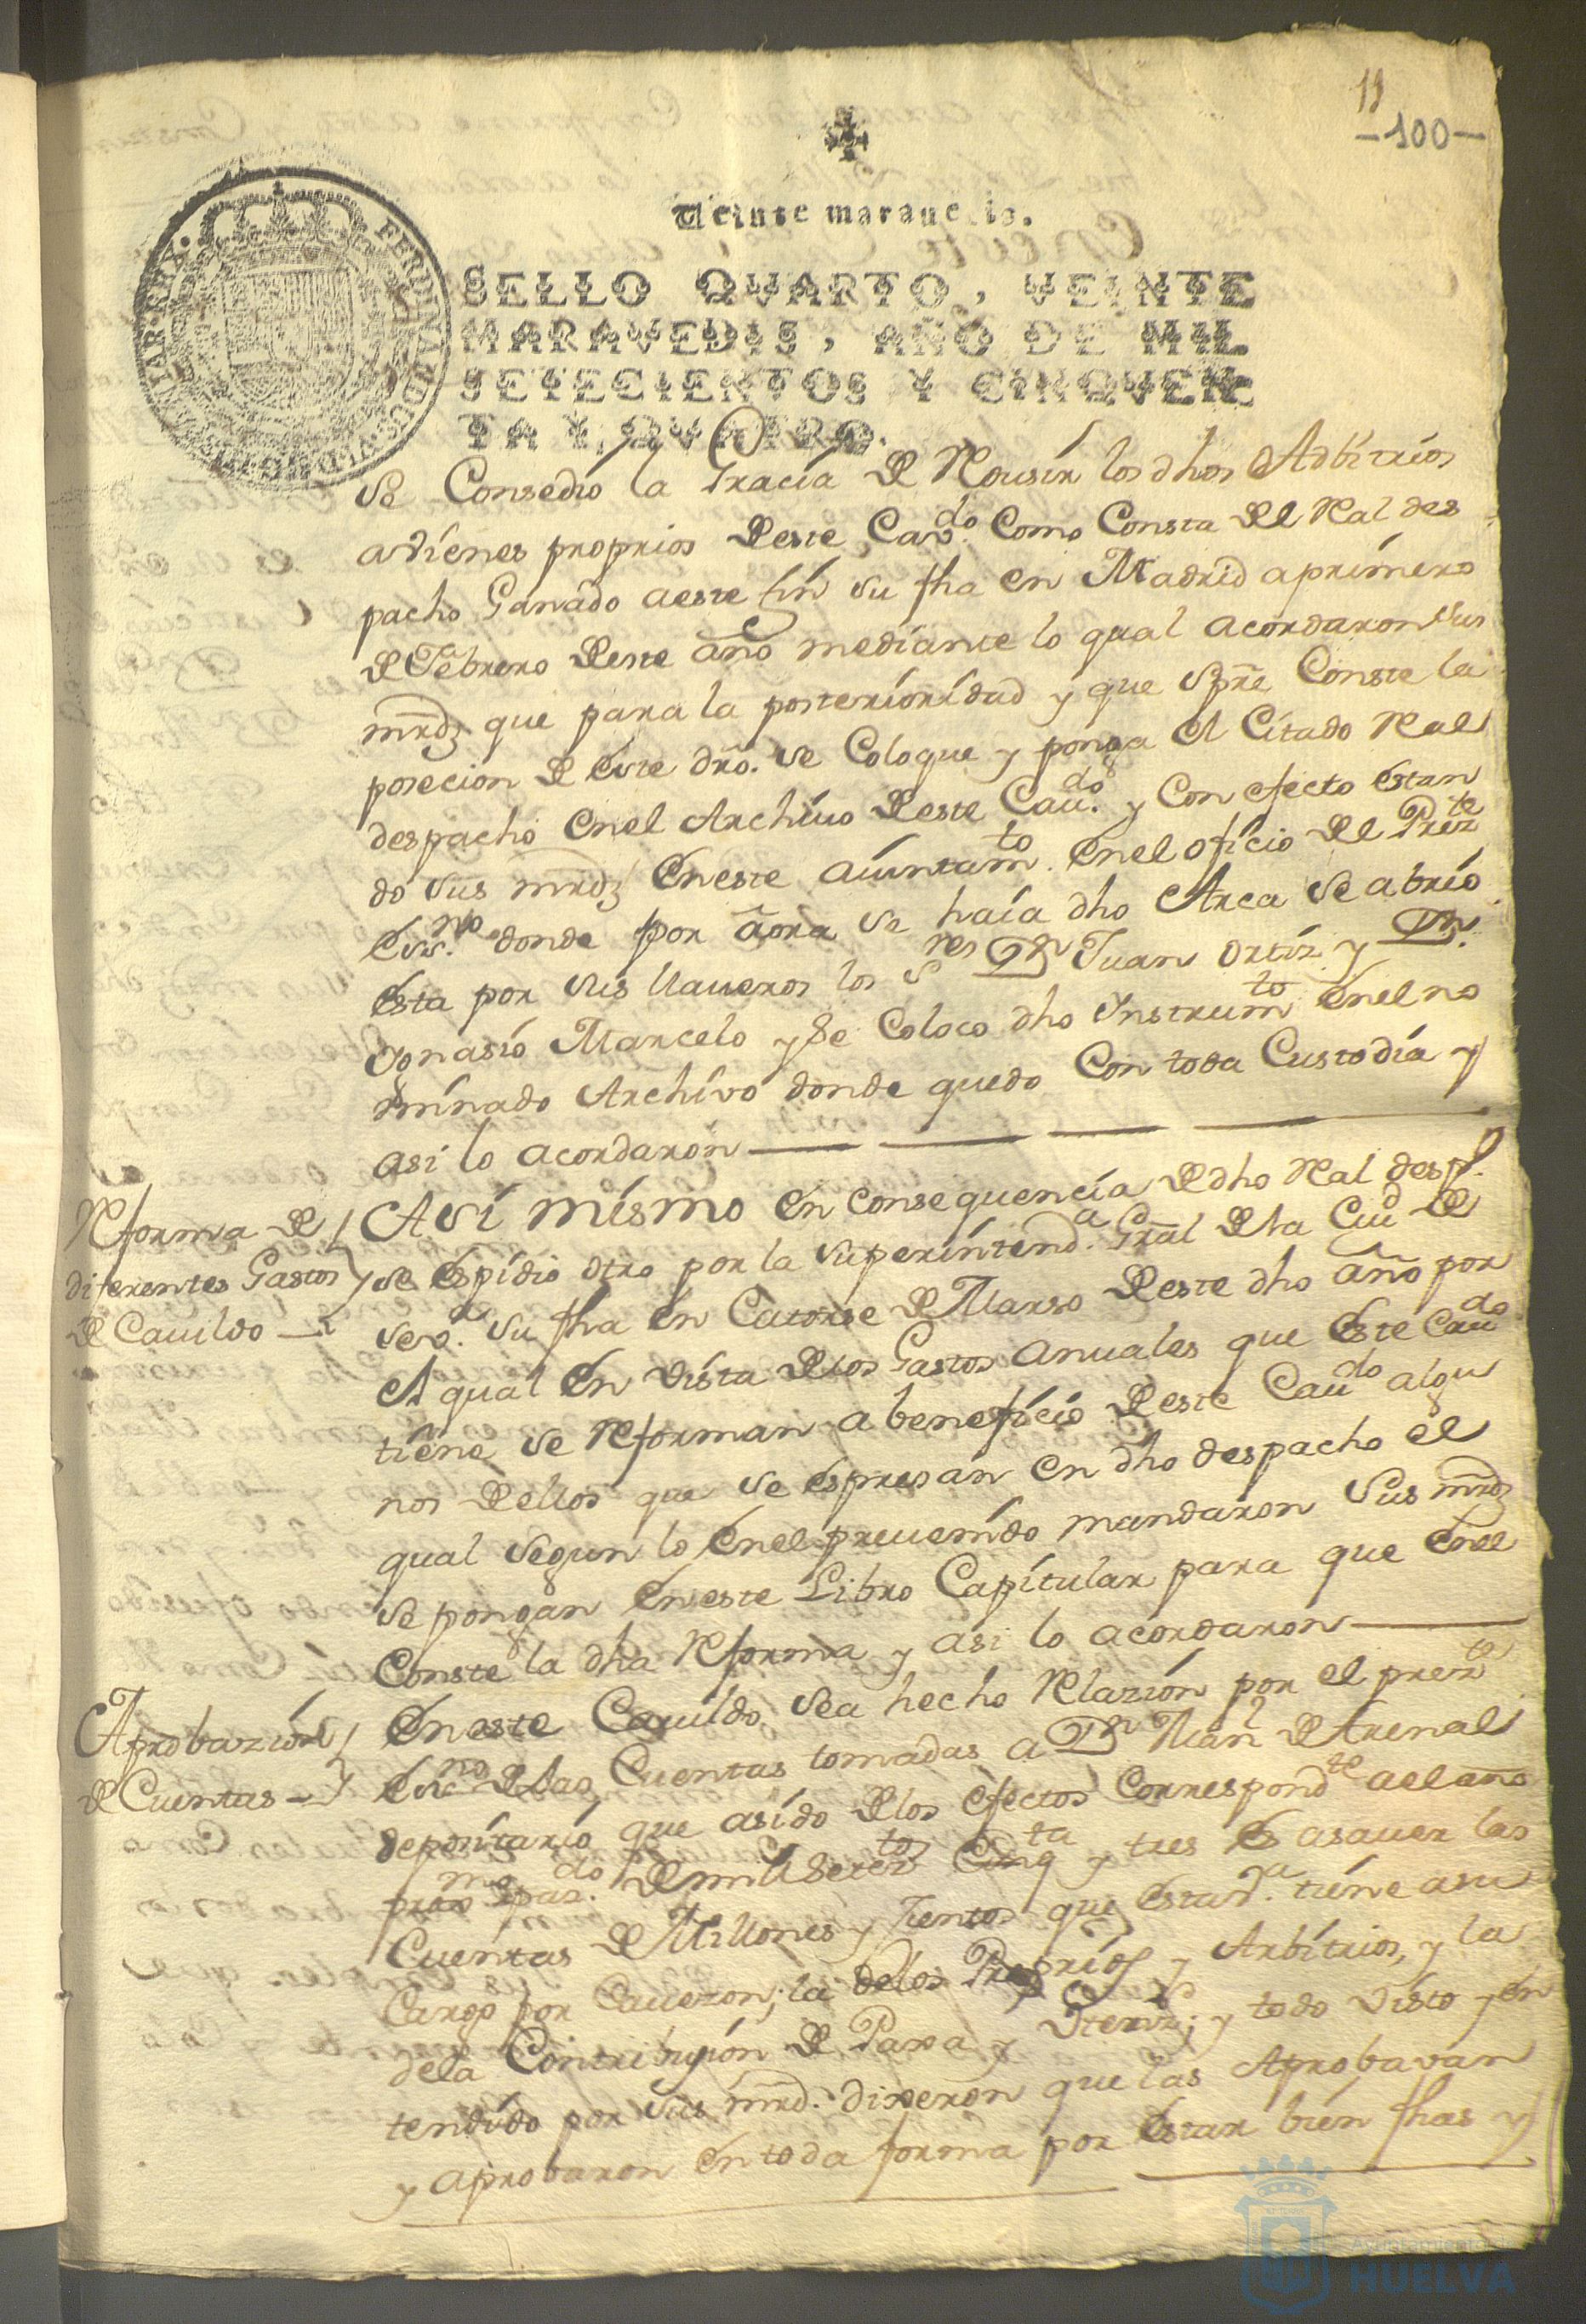 19
-100-
Veinte maravedis.
SELLO QVARTO, VEINTE
MARAVEDIS, AÑO DE MIL
SETECIENTOS Y CINQVEN
TA Y QVATRO.
se Consedio la Gracia de Rousir los dhos Adbitrios
avienes proprios deste Cavdo. Como Consta del Ral des
pacho Ganado aeste fin su fha en Madrid aprimero
de Febrero deste año mediante lo qual acordaron sus
mrdz que para la posterioridad y que spre Conste la
posecion de este dro. se Coloque y ponga el Citado Ral
despacho enel Archiuo deste Caudo. y Con efecto estan
do sus mrdz eneste aiuntamto. enel oficio del Prezte
Essno. donde por aora se haia dho Arca se abrio
esta por sus llaueros los Sres Dn Juan Ortiz y Dn.
Ignasio Marcelo y se Coloco dho Instrumto enel no
minado Archivo donde quedo Con toda Custodia y
asi lo acordaron
Rforma de
diferentes Gastos
de Cauildo
Asi mismo en consequencia de dho Ral desp.
se espidio otro por la superintenda. Gral de la Ciud de
seva. su fha en Catorse de Marso deste dho año por
el qual en vista de los Gastos anuales que este Caudo
tiene se Rforman a beneficio deste Caudo algu
nos dellos que se espresan en dho despacho el
qual segun lo enel preuenido mandaron sus mrdz
se pongan eneste Libro Capitular para que enel
Conste la dha Rforma y asi lo acordaron
Aprobazion
de Cuentas
eneste Cauildo, sea hecho Rlazion por el prezte
Essno de las Cuentas tomadas a Dn Man de Arenal
depositario que asido de los efectos Correspondte ael año
proxmo pasdo. de mil setezto Cinqta y tres es asauer las
Cuentas de Millones y Zientos que esta va. tiene asu
Cargo por Cauezon; la delos Proprios y Arbitrios, y la
dela Contribuzion de Paxa y Vtenz; y todo visto y en
tendido por sus mrd. dixeron que las Aprobavan
y aprobaron en toda forma por estar bien fhas y
Ayuntamiento de
HUELVA